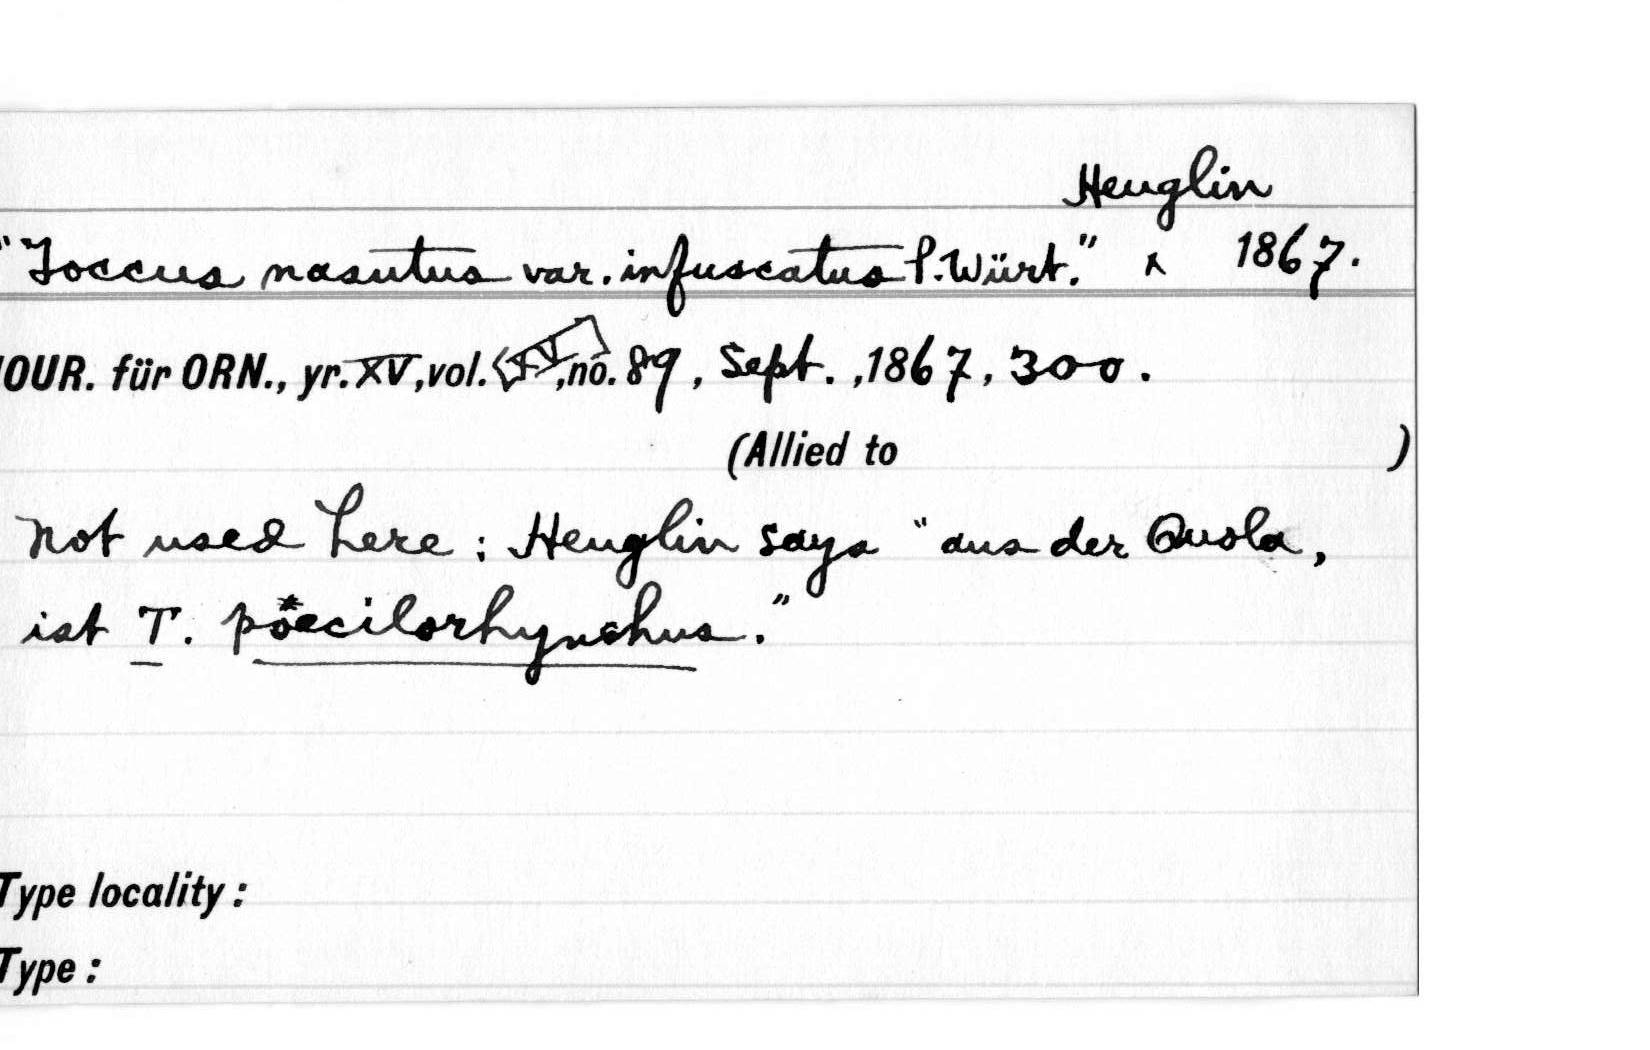 Heuglin
"Toccus nasutus var. infuscatus P. Würt." ^ 1867.
JOUR. für ORN., yr. XV, vol. <XV>, no. 89, Sept., 1867, 300.
(Allied to )
Not used here; Heuglin says "aus der Quola,
ist T. poecilorhynchus."
Type locality:
Type: